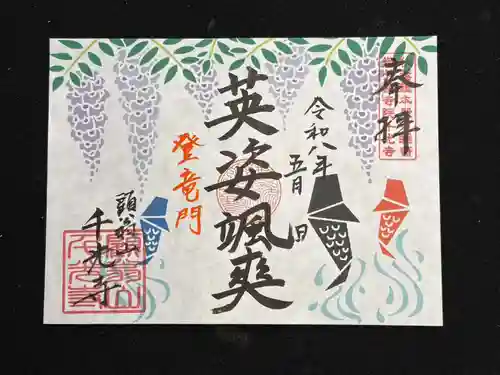 奉拝
令和八年
五月 日
英姿颯爽
登竜門
頭谷山
千光寺